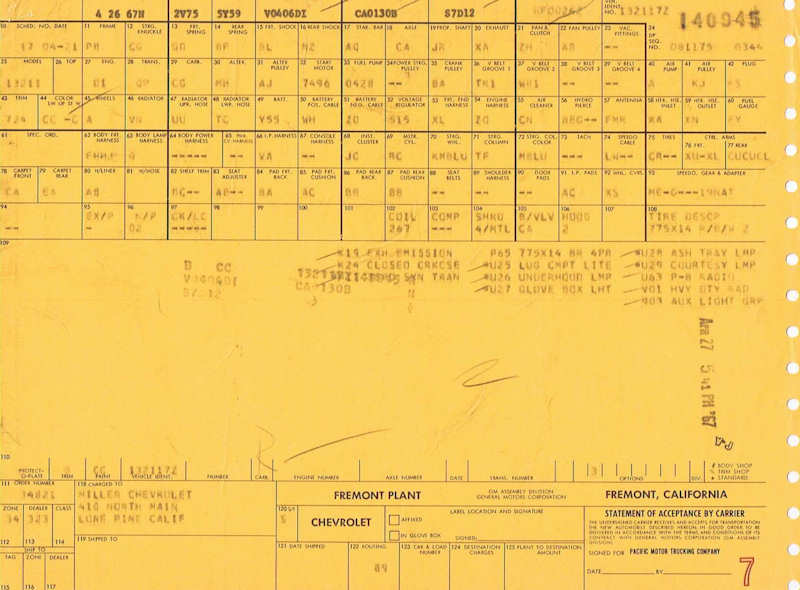 4 26 67N 2V75 5Y59 V0406DI CA0130B S7D12 132117Z 140945
10 SCHED. NO. DATE 11 FRAME 12 STRG. KNUCKLE 13 FRT. SPRING 14 REAR SPRING 15 FRT. SHOCK 16 REAR SHOCK 17 STAB. BAR 18 AXLE 19 PROP. SHAFT 20 EXHAUST 21 FAN & CLUTCH 22 FAN PULLEY 23 VAC. FITTINGS 24 DP SEQ. NO.
17 04-21 081175 0344
25 MODEL 26 TOP 27 ENG. 28 TRANS. 29 CARB. 30 ALTER. 31 ALTER PULLEY 32 START MOTOR 33 FUEL PUMP 34 POWER STRG. PULLEY 35 CRANK PULLEY 36 V BELT GROOVE 1 37 V BELT GROOVE 2 38 V BELT GROOVE 3 39 V BELT GROOVE 4 40 AIR PUMP 41 AIR PULLEY 42 PLUG
13211 QP CG MH AJ 7496 0428 -- BA -- -- -- A KJ
43 TRIM 44 COLOR 45 WHEELS 46 RADIATOR 47 RADIATOR UPR. HOSE 48 RADIATOR LWR. HOSE 49 BATT. 50 BATTERY POS. CABLE 51 BATTERY NEG. CABLE 52 VOLTAGE REGULATOR 53 FRT. END HARNESS 54 ENGINE HARNESS 55 AIR CLEANER 56 HYDRO PIERCE 57 ANTENNA 58 HTR. HSE. INLET 59 HTR. HSE. OUTLET 60 FUEL GAUGE
724 CC -C A VN UU TC Y55 WH ZO 515 XL ZQ CN FMR XA XN
61 SPEC. ORD. 62 BODY FRT. HARNESS 63 BODY LAMP HARNESS 64 BODY POWER HARNESS 65 CV HARNESS 66 I.P. HARNESS 67 CONSOLE HARNESS 68 INST. CLUSTER 69 MSTR. CYL. 70 STRG. WHL. 71 STRG. COLUMN 72 STRG. COL. COLOR 73 TACH 74 SPEEDO CABLE 75 TIRES CTRL. ARMS 76 FRT. 77 REAR
----- -- VA -- JC RC KMBLU TF MBLU --- LW-- CR-- XU-XL CUCUCL
78 CARPET FRONT 79 CARPET REAR 80 H/LINER 81 H/HOSE 82 SHELF TRIM 83 SEAT ADJUSTER 84 PAD FRT. BACK 85 PAD FRT. CUSHION 86 PAD REAR BACK 87 PAD REAR CUSHION 88 SEAT BELTS 89 SHOULDER HARNESS 90 DOOR PADS 91 I.P. PADS 92 WHL. CVRS. 93 SPEEDO, GEAR & ADAPTER
CA EA AB -- BA AC BB BB -- --- --- AC XS
94 95 96 97 98 99 100 101 102 103 104 105 106 107 108
EX/P CK/LC COIL COMP SHRO B/VLV HOOD TIRE DESCP
-- 02 ----- 267 --- 4/MTL CA 2 775X14 R/B/W 2
109
K19 EXH EMISSION P65 775X14 BR 4PR U28 ASH TRAY LMP
B CC K24 CLOSED CRKCSE U25 LUG CMPT LITE U29 COURTESY LMP
V0406DI TRAN U26 UNDERHOOD LMP U63 P-B RADIO
S7D12 CA0130B U27 GLOVE BOX LHT V01 HVY DTY RAD
AUX LIGHT GRP
APR 27 5 41 PM '67
110
PROTECT-O-PLATE TRIM PAINT VEHICLE IDENT. NUMBER CARB. ENGINE NUMBER AXLE NUMBER DATE TRANS. NUMBER OPTIONS DIV. # BODY SHOP % TRIM SHOP ★ STANDARD
CG 132117Z 3
111 ORDER NUMBER 118 CHARGED TO
34821 MILLER CHEVROLET
ZONE DEALER CLASS 410 NORTH MAIN
34 323 LONE PINE CALIF
112 113 114 119 SHIPPED TO
SHIP TO
TAG ZONE DEALER
115 116 117
FREMONT PLANT GM ASSEMBLY DIVISION GENERAL MOTORS CORPORATION FREMONT, CALIFORNIA
120 S/T
S CHEVROLET
LABEL LOCATION AND SIGNATURE
AFFIXED
IN GLOVE BOX SIGNED:
121 DATE SHIPPED 122 ROUTING 123 CAR & LOAD NUMBER 124 DESTINATION CHARGES 125 PLANT TO DESTINATION AMOUNT
09
STATEMENT OF ACCEPTANCE BY CARRIER
THE UNDERSIGNED CARRIER RECEIVES AND ACCEPTS FOR TRANSPORTATION THE NEW AUTOMOBILES DESCRIBED HEREON, IN GOOD ORDER TO BE DELIVERED IN ACCORDANCE WITH THE TERMS, AND CONDITIONS OF ITS CONTRACT WITH GENERAL MOTORS CORPORATION GM ASSEMBLY DIVISION.
SIGNED FOR PACIFIC MOTOR TRUCKING COMPANY
DATE BY
7